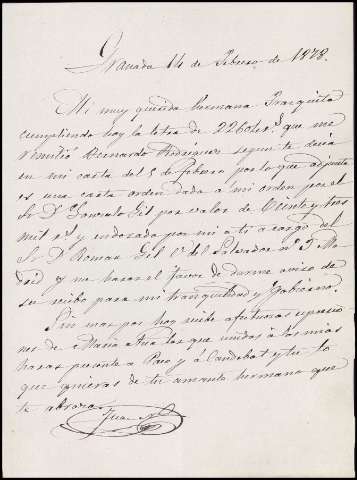 Granada 14 de Febrero de 1878.
Mi muy querida hermana Frasquita
cumpliendo hoy la letra de 22 que me
remitió Bernardo Rodriguez segun te decia
en mi carta del 5 de febrero por lo que adjunta
es una carta orden dada a mi orden por el
Sr Dn Gonzalo Gil por valor de Veinte y tres
mil rs y endozada por mi a ti a cargo del
Sr D. Roman Gil Cª del Salvador nº 5 Ma
drid y me haras el favor de darme aviso de
su recibo para mi tranquilidad y gobierno.
Sin mas por hoy recibe afectuosas espresio
nes de Maria Ana las que unidas á las mias
haras presente a Paco y á Candebat y tu lo
que quieras de tu amante hermano que
te abraza.
Juan